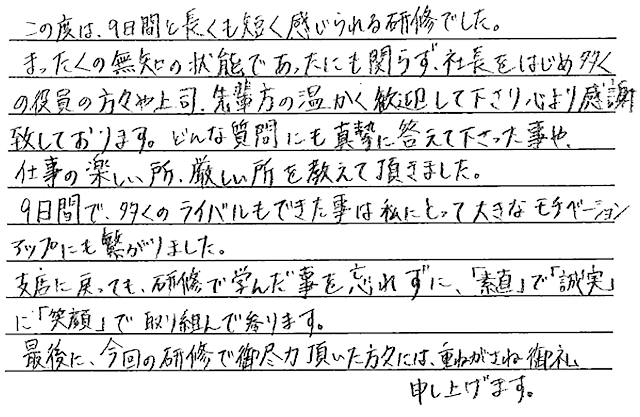 この度は、9日間と長くも短く感じられる研修でした。
まったくの無知の状態であったにも関らず、社長をはじめ多く
の役員の方々や上司、先輩方の温かく歓迎して下さり心より感謝
致しております。どんな質問にも真摯に答えて下さった事や、
仕事の楽しい所、厳しい所を教えて頂きました。
9日間で、多くのライバルもできた事は私にとって大きなモチベーション
アップにも繋がりました。
支店に戻っても、研修で学んだ事を忘れずに、「素直」で「誠実」
に「笑顔」で取り組んで参ります。
最後に、今回の研修で御尽力頂いた方々には、重ねがさね御礼
申し上げます。